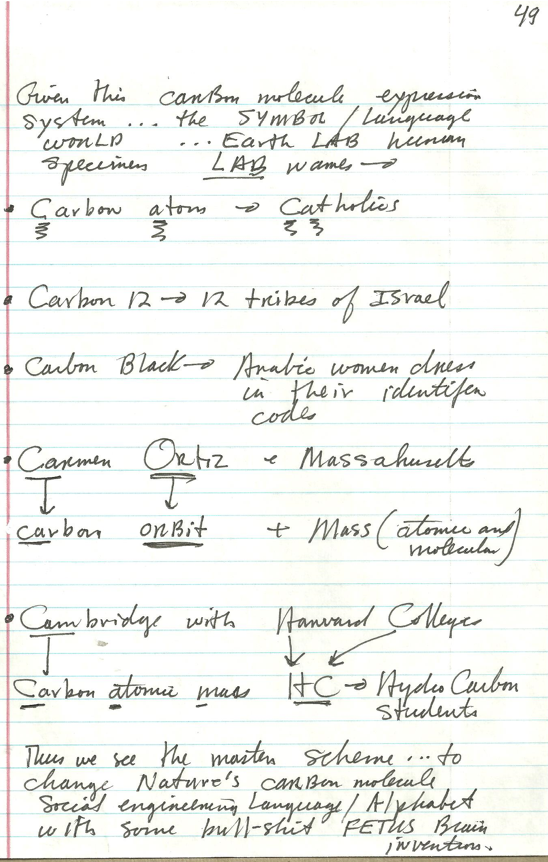 49
Given this carBon molecule expression
system ... the SYMBOL / Language
WORLD ... Earth LAB human
specimens LAB names →
• Carbon atom → Catholics
• Carbon 12 → 12 tribes of Israel
• Carbon Black → Arabic women dress
in their identifer
codes
• Carmen Ortiz e Massahusetts
carbon orBit + Mass (atomic and
molecular)
• Cambridge with Harvard Colleges
Carbon atomic mass HC → Hydro Carbon
students
Thus we see the master scheme ... to
change Nature's carBon molecule
Social engineering Language / Alphabet
with some bull-shit FETUS Brain
invention.